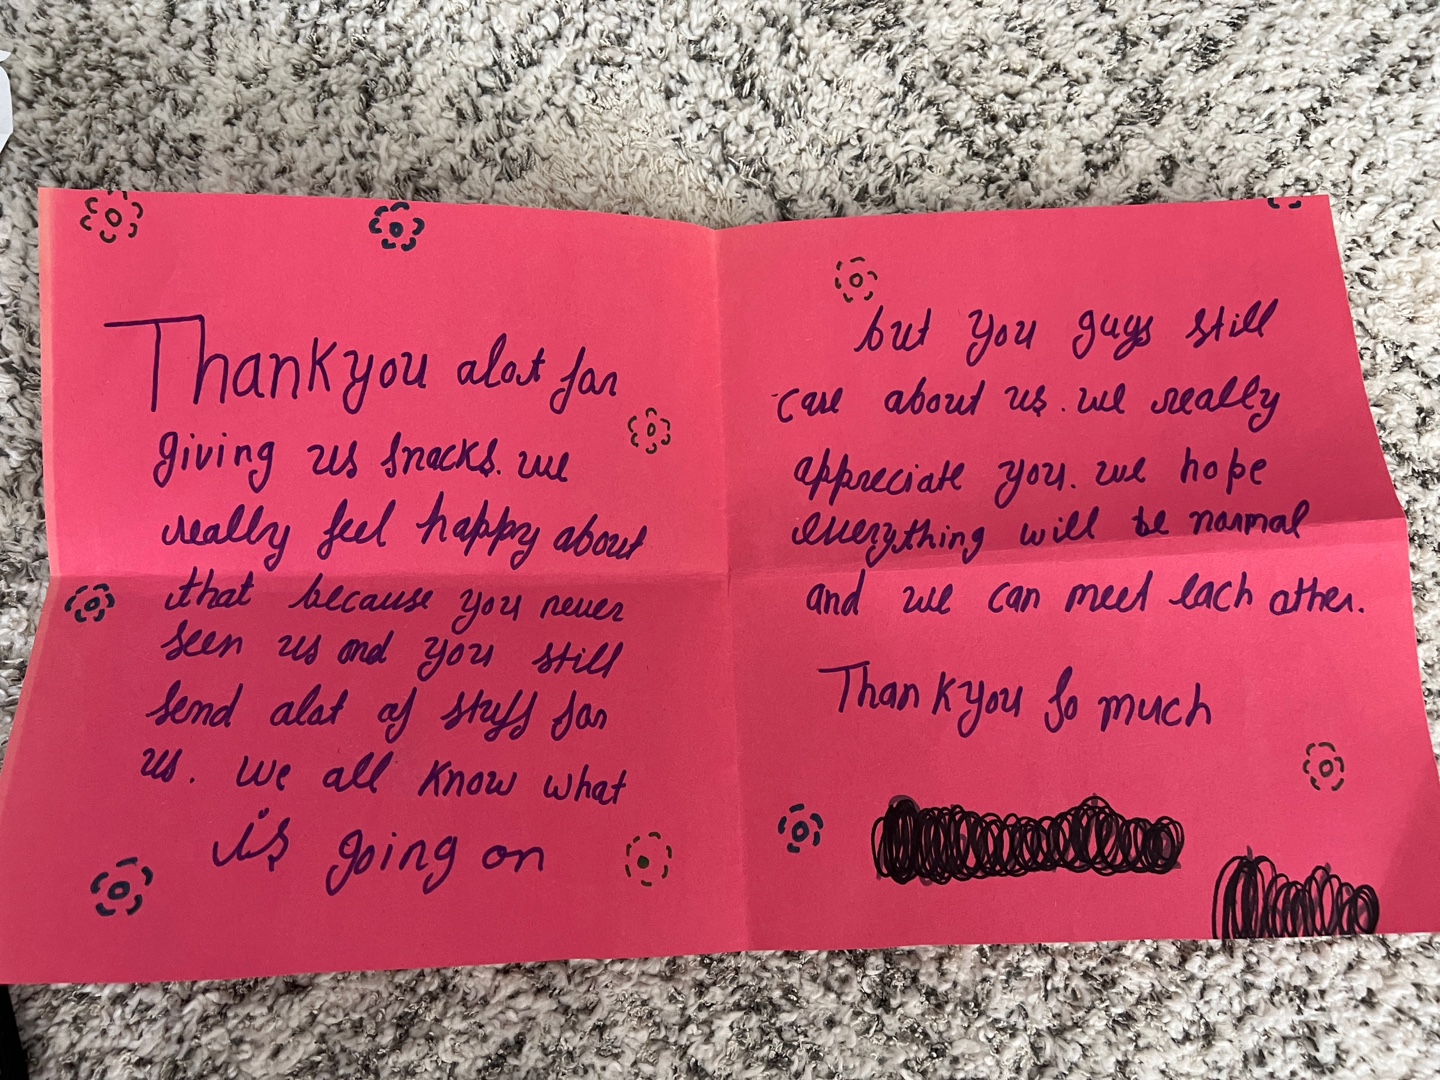 Thankyou alot for
giving us snacks. we
really feel happy about
that because you never
seen us and you still
send alot of stuff for
us. we all know what
is going on
but you guys still
care about us. we really
appreciate you. we hope
everything will be normal
and we can meet each other.
Thankyou so much